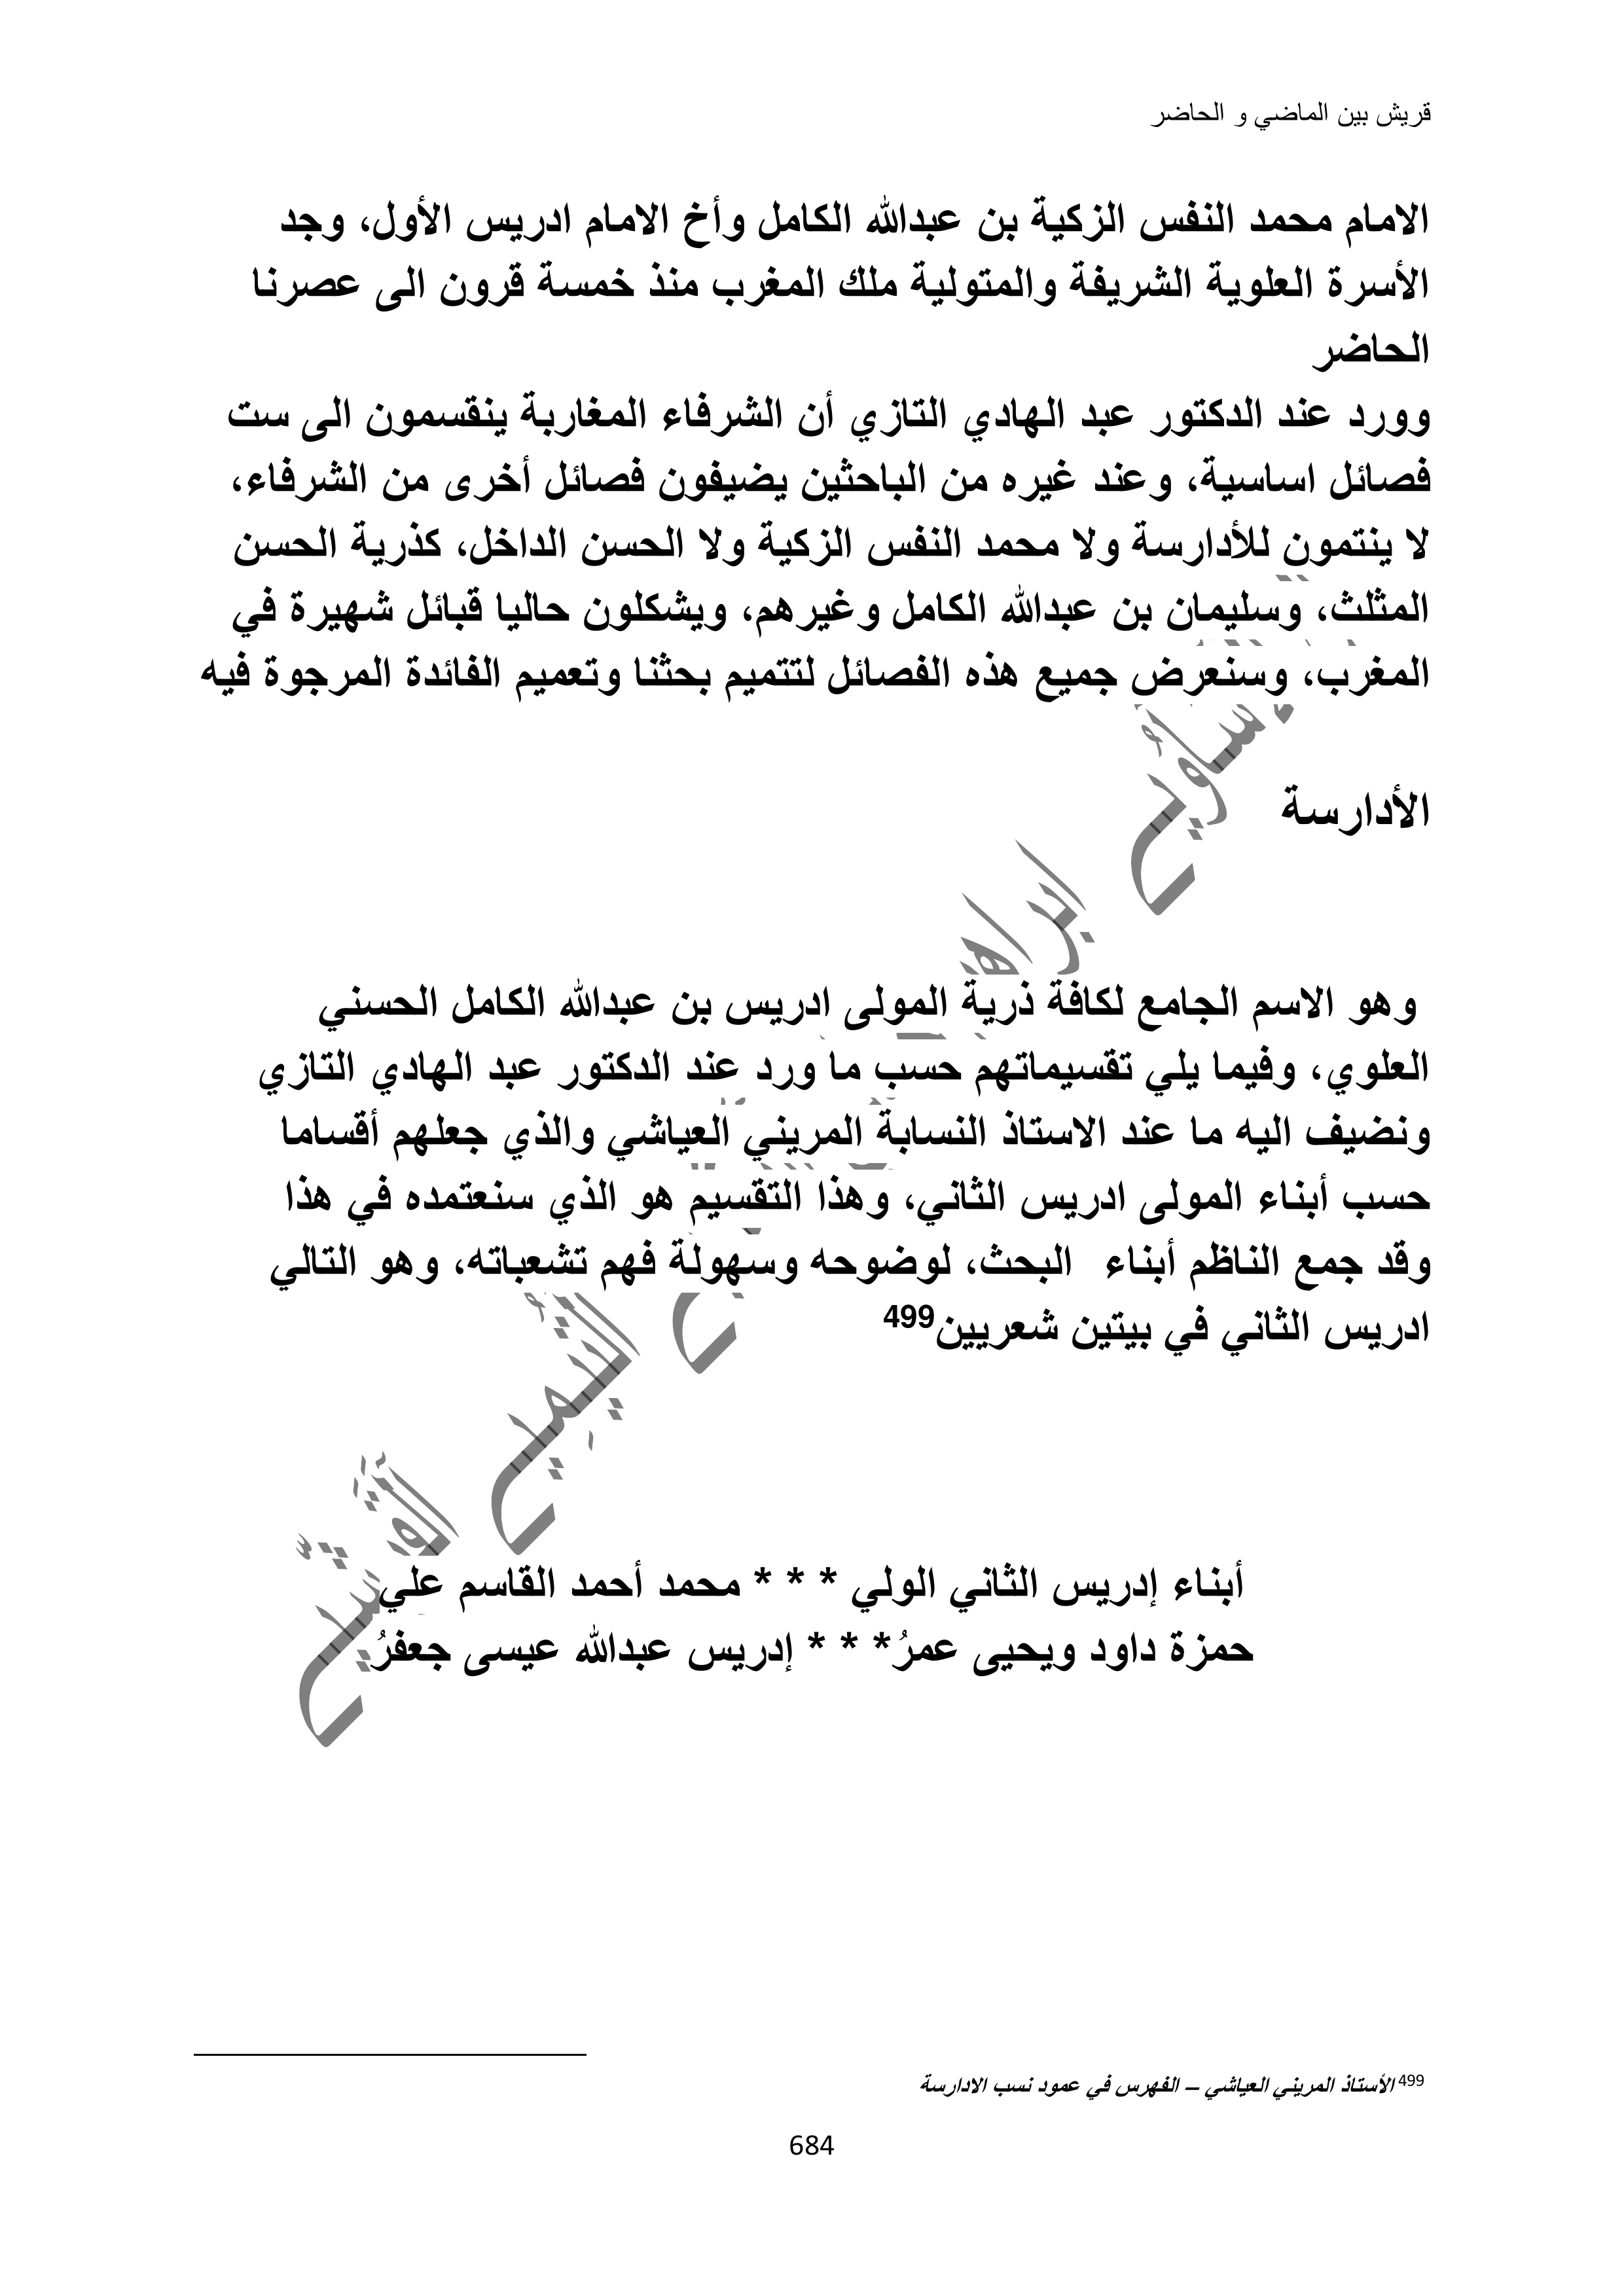 قريش بين الماضي و الحاضر
الامام محمد النفس الزكية بن عبدالله الكامل وأخ الامام ادريس الأول، وجد
الأسرة العلوية الشريفة والمتولية ملك المغرب منذ خمسة قرون الى عصرنا
الحاضر
وورد عند الدكتور عبد الهادي التازي أن الشرفاء المغاربة ينقسمون الى ست
فصائل اساسية، وعند غيره من الباحثين يضيفون فصائل أخرى من الشرفاء،
لا ينتمون للأدارسة ولا محمد النفس الزكية ولا الحسن الداخل، كذرية الحسن
المثلث، وسليمان بن عبدالله الكامل وغيرهم، ويشكلون حاليا قبائل شهيرة في
المغرب، وسنعرض جميع هذه الفصائل لتتميم بحثنا وتعميم الفائدة المرجوة فيه
الأدارسة
وهو الاسم الجامع لكافة ذرية المولى ادريس بن عبدالله الكامل الحسني
العلوي، وفيما يلي تقسيماتهم حسب ما ورد عند الدكتور عبد الهادي التازي
ونضيف اليه ما عند الاستاذ النسابة المريني العياشي والذي جعلهم أقساما
حسب أبناء المولى ادريس الثاني، وهذا التقسيم هو الذي سنعتمده في هذا
وقد جمع الناظم أبناء البحث، لوضوحه وسهولة فهم تشعباته، وهو التالي
ادريس الثاني في بيتين شعريين499
أبناء إدريس الثاني الولي * * * محمد أحمد القاسم علي
حمزة داود ويحيى عمرُ* * * إدريس عبدالله عيسى جعفرُ
499 الأستاذ المريني العياشي – الفهرس في عمود نسب الادارسة
684